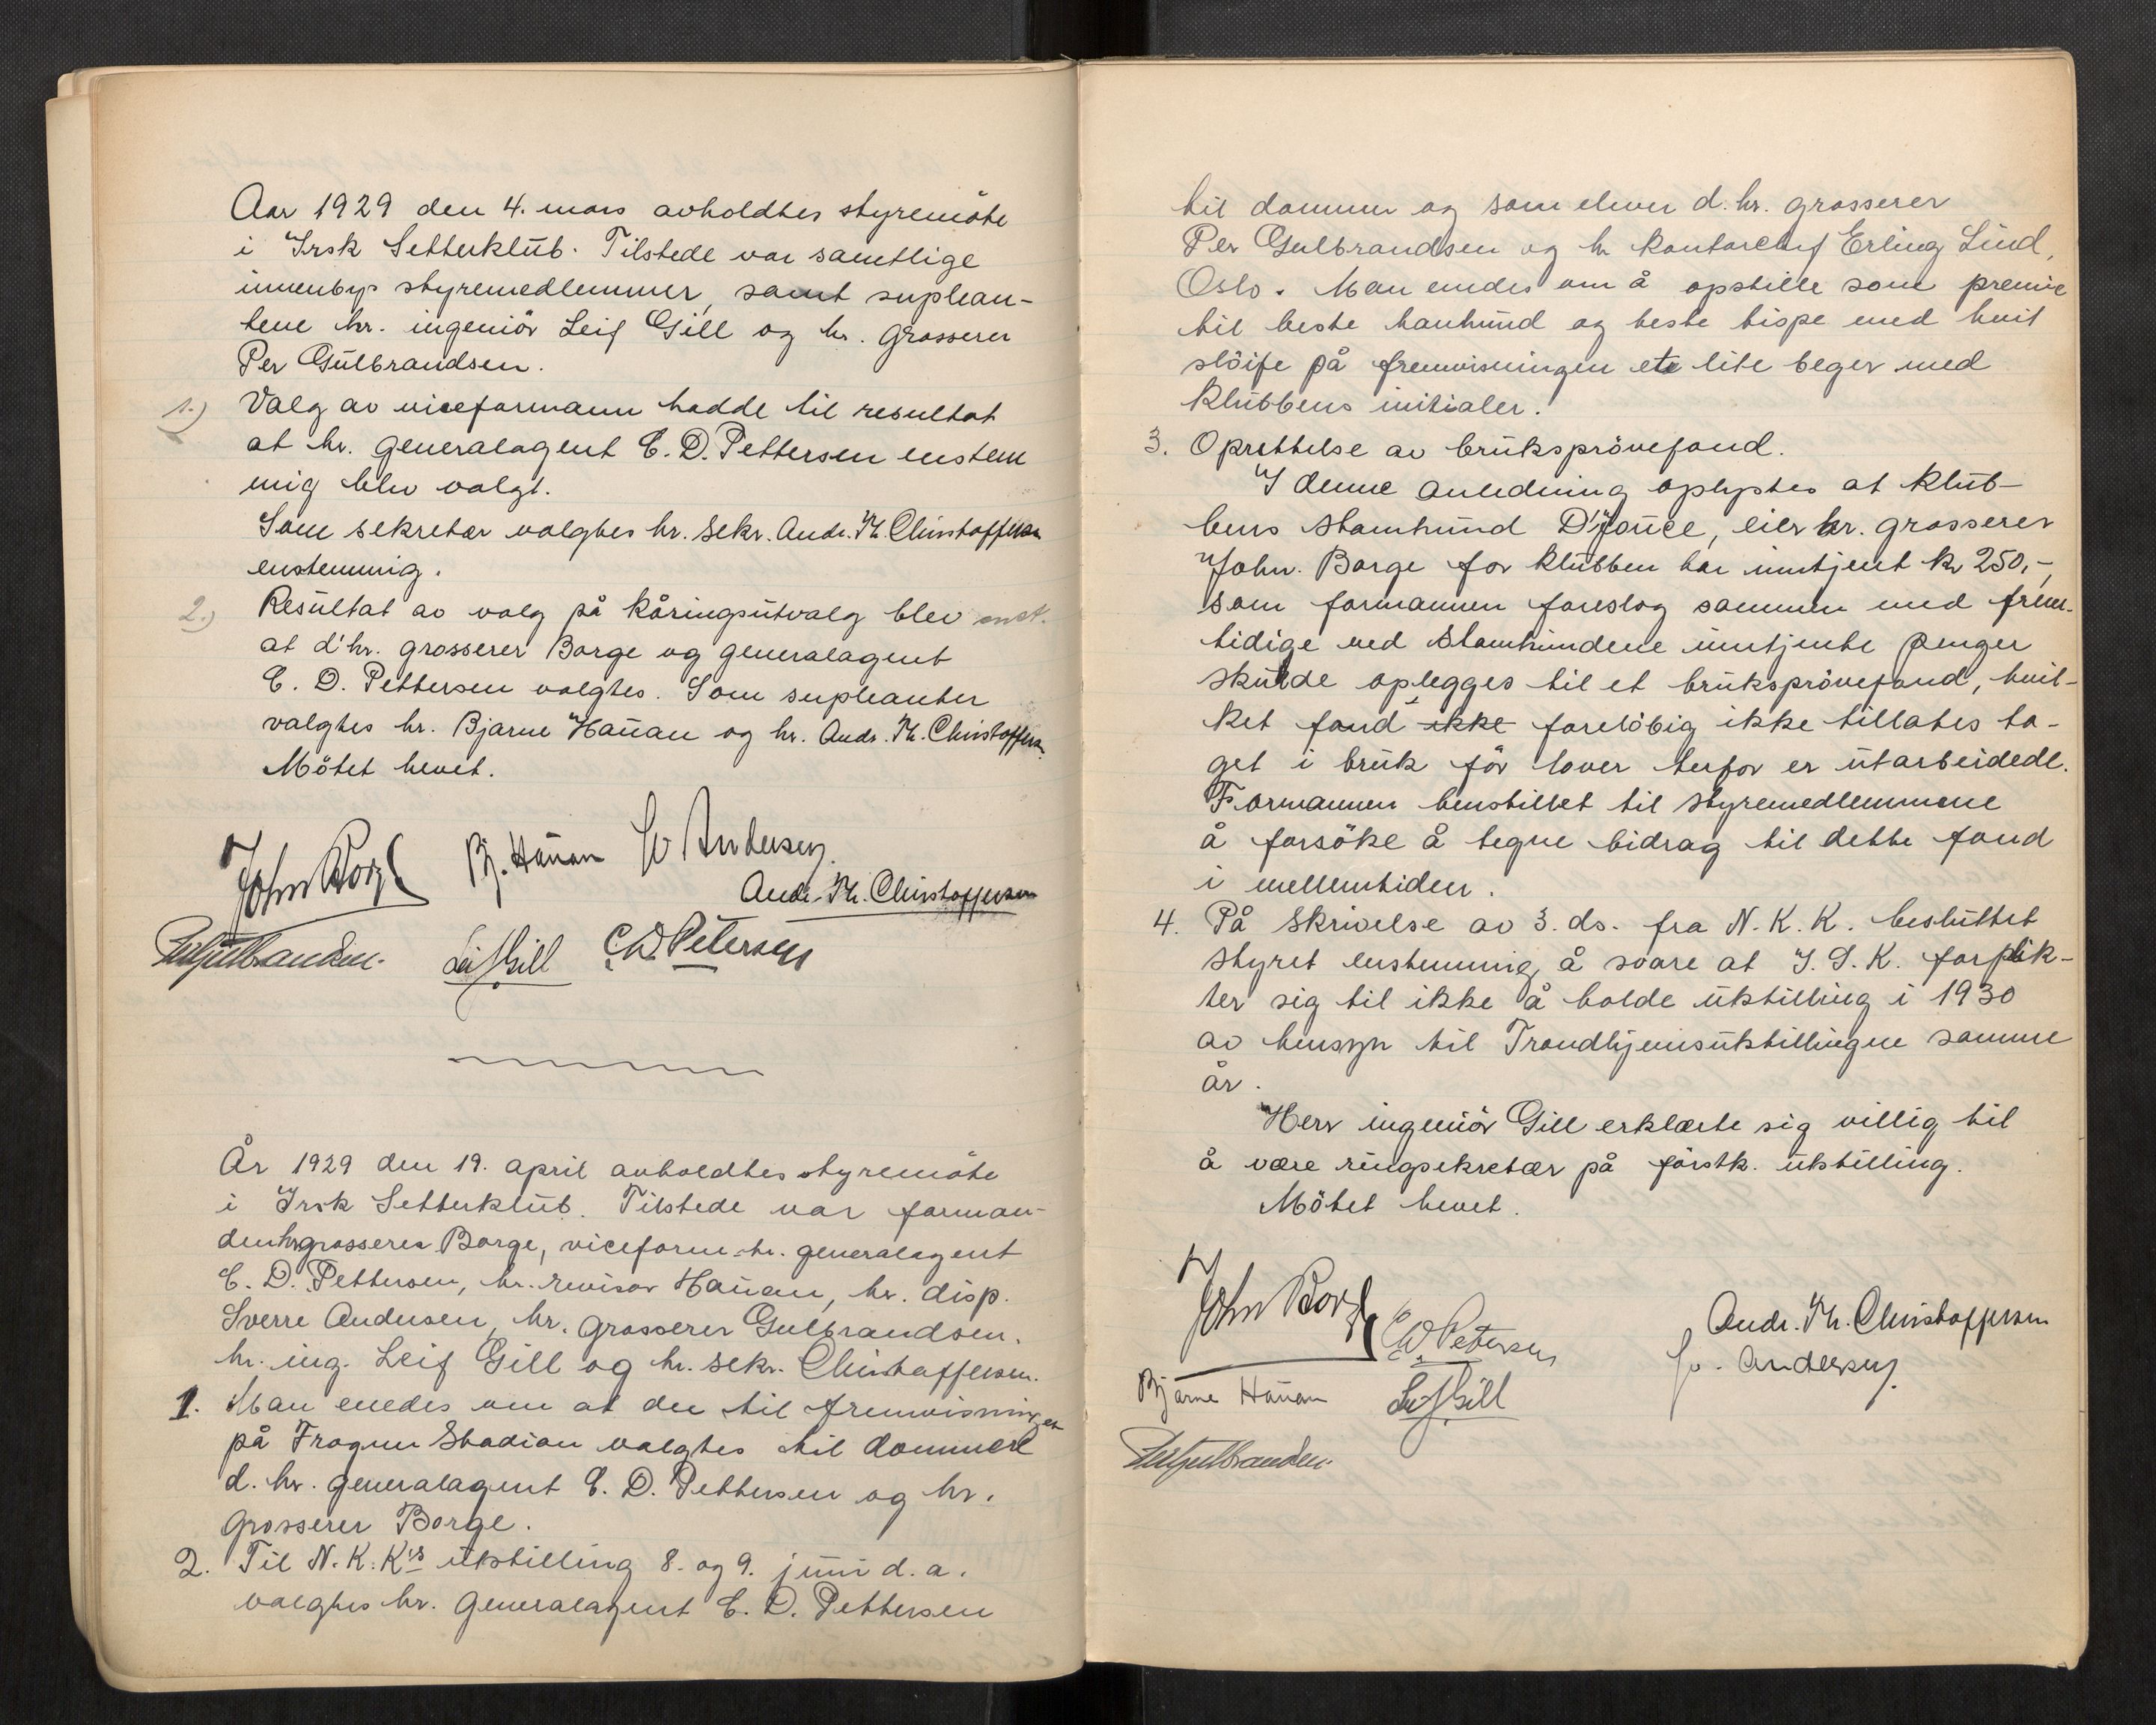 Aar 1929 den 4. mars avholdtes styremöte
i Irsk Setterklub. Tilstede var samtlige
innenbys styremedlemmer, samt suplean-
tene hr. ingeniör Leif Gill og hr. grosserer
Per Gulbrandsen.
1.) Valg av viceformann hadde til resultat
at hr. generalagent C. D. Pettersen enstem
mig blev valgt.
Som sekretær valgtes hr. sekr. Andr. Th. Christoffersen
enstemmig.
2.) Resultat av valg på kåringsutvalg blev
at d'hr. grosserer Borge og generalagent
C. D. Pettersen valgtes. Som supleanter
valgtes hr. Bjarne Hauan og hr. Andr. Th. Christoffersen
Mötet hevet.
John Borge Bj. Hauan Sv Andersen
Andr. Th. Christoffersen
Per Gulbrandsen. Leif Gill C.D. Petersen
År 1929 den 19. april avholdtes styremöte
i Irsk Setterklub. Tilstede var forman-
den hr grosserer Borge, viceform. hr. generalagent
C. D. Pettersen, hr. revisor Hauan, hr. disp.
Sverre Andersen, hr. grosserer Gulbrandsen.
hr. ing. Leif Gill og hr. sekr. Christoffersen.
1. Man enedes om at der til fremvisningen
på Frogner Stadion valgtes til dommere
d. hr. generalagent C. D. Pettersen og hr.
grosserer Borge.
2. Til N. K. K's utstilling 8. og 9. juni d. a.
valgtes hr. generalagent C. D. Pettersen
til dommer og som elever d. hr. grosserer
Per Gulbrandsen og hr kontorchef Erling Lind,
Oslo. Man enedes om å opstille som premie
til beste hanhund og beste tispe med hvit
slöife på fremvisningen ete lite beger med
klubbens initialer.
3. Oprettelse av bruksprövefond.
I denne anledning oplystes at klub-
bens stamhund D'Jouce, eier hr. grosserer
John. Borge for klubben har inntjent kr 250,-,
som formannen foreslog sammen med frem-
tidige ved stamhundene inntjente penger
skulde oplegges til et bruksprövefond, hvil-
ket fond ikke forelöbig ikke tillates ta-
get i bruk för lover herfor er utarbeidede.
Formannen henstillet til styremedlemmene
å forsöke å tegne bidrag til dette fond
i mellemtiden.
4. På skrivelse av 3. ds. fra N. K. K. besluttet
styret enstemmig å svare at I. S. K. forplik-
ter sig til ikke å holde utstilling i 1930
av hensyn til Trondhjemsutstillingen samme
år.
Herr ingeniör Gill erklærte sig villig til
å være ringsekretær på förstk. utstilling.
Mötet hevet.
John Borge C.D. Petersen Andr. Th. Christoffersen
Sv. Andersen
Bjarne Hauan Leif Gill
Per Gulbrandsen.